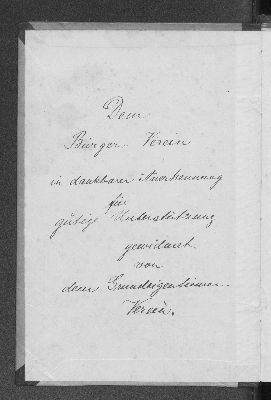 Dem
Bürger Verein
in dankbarer Anerkennung
für
gütige Unterstützung
gewidmet
von
dem Grundeigenthümer-
Verein.